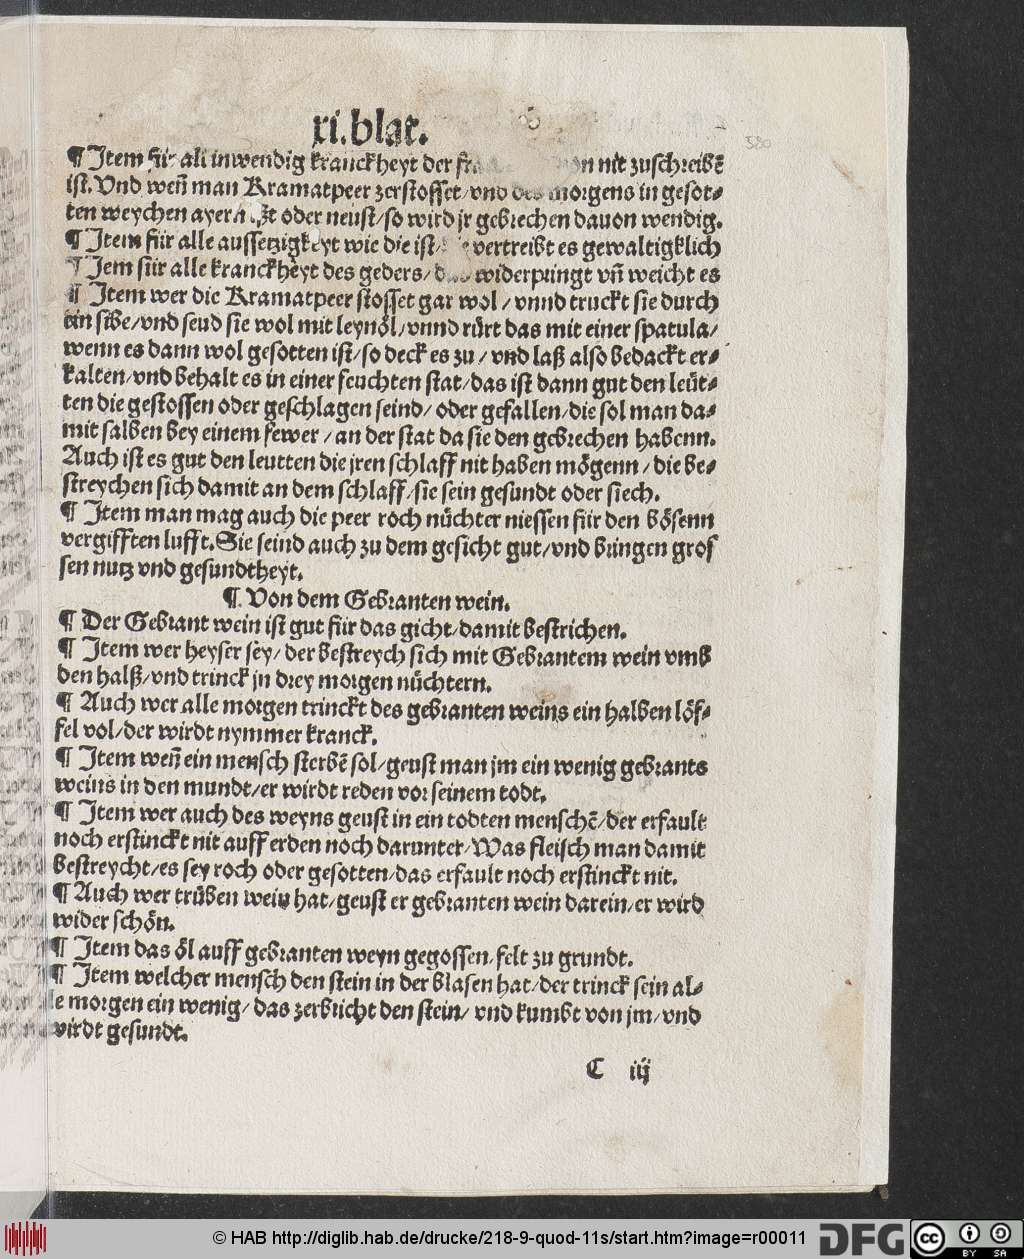 xi.blat.
¶ Item für all inwendig kranckheyt der on nit zuschreibē
ist. Vnd weñ man Kramatpeer zerstosset/vnd des morgens in gesot⸗
ten weychen ayern ißt oder neust/so wird jr gebrechen dauon wendig.
¶ Item für alle aussetzigkeyt wie die ist/ vertreibt es gewaltigklich
¶ Jem für alle kranckheyt des geders/ das widerpringt vñ weicht es
¶ Item wer die Kramatpeer stosset gar wol/vnnd truckt sie durch
ein sibe/vnd seud sie wol mit leynöl/vnnd rürt das mit einer spatula/
wenn es dann wol gesotten ist/so deck es zu/vnd laß also bedackt er⸗
kalten/vnd behalt es in einer feuchten stat/das ist dann gut den leüt⸗
ten die gestossen oder geschlagen seind/oder gefallen/die sol man da⸗
mit salben bey einem fewer/an der stat da sie den gebrechen habenn.
Auch ist es gut den leutten die jren schlaff nit haben mögenn/die be⸗
streychen sich damit an dem schlaff/sie sein gesundt oder siech.
¶ Item man mag auch die peer roch nüchter niessen für den bösenn
vergifften lufft. Sie seind auch zu dem gesicht gut/vnd bringen gros
sen nutz vnd gesundtheyt.
¶ Von dem Gebranten wein.
¶ Der Gebrant wein ist gut für das gicht/damit bestrichen.
¶ Item wer heyser sey/der bestreych sich mit Gebrantem wein vmb
den halß/vnd trinck jn drey morgen nüchtern.
¶ Auch wer alle morgen trinckt des gebranten weins ein halben löf⸗
fel vol/der wirdt nymmer kranck.
¶ Item weñ ein mensch sterbē sol/geust man jm ein wenig gebrants
weins in den mundt/er wirdt reden vor seinem todt.
¶ Item wer auch des weyns geust in ein todten menschē/der erfault
noch erstinckt nit auff erden noch darunter/Was fleisch man damit
bestreycht/es sey roch oder gesotten/das erfault noch erstinckt nit.
¶ Auch wer trüben wein hat/geust er gebranten wein darein/er wird
wider schön.
¶ Item das öl auff gebranten weyn gegossen/felt zu grundt.
¶ Item welcher mensch den stein in der blasen hat/der trinck sein al⸗
le morgen ein wenig/das zerbricht den stein/vnd kumbt von jm/vnd
wirdt gesundt.
C iij
580
© HAB http://diglib.hab.de/drucke/218-9-quod-11s/start.htm?image=r00011
DFG
cc
BY SA